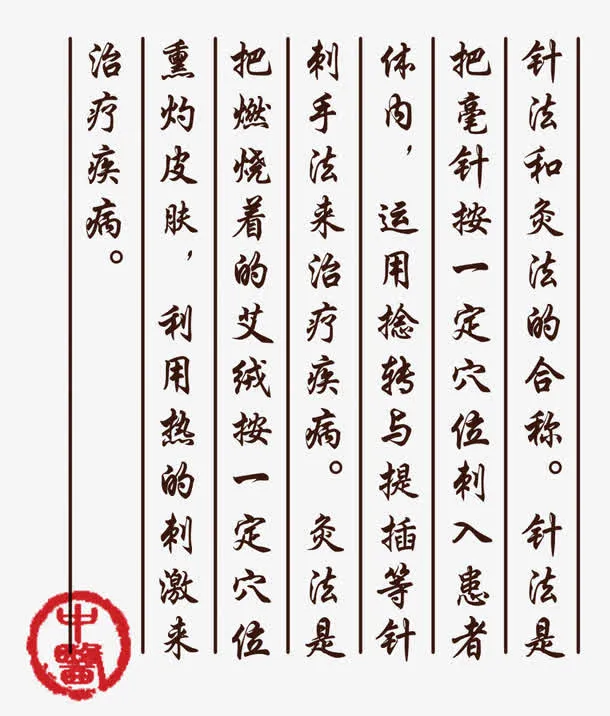 针法和灸法的合称。针法是
把毫针按一定穴位刺入患者
体内，运用捻转与提插等针
刺手法来治疗疾病。灸法是
把燃烧着的艾绒按一定穴位
熏灼皮肤，利用热的刺激来
治疗疾病。
中醫